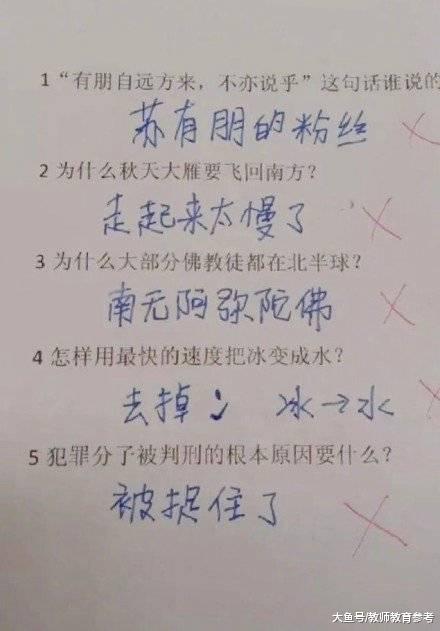 1“有朋自远方来，不亦说乎”这句话谁说的
苏有朋的粉丝
2 为什么秋天大雁要飞回南方？
走起来太慢了
3 为什么大部分佛教徒都在北半球？
南无阿弥陀佛
4 怎样用最快的速度把冰变成水？
去掉冫 冰→水
5 犯罪分子被判刑的根本原因要什么？
被捉住了
大鱼号/教师教育参考